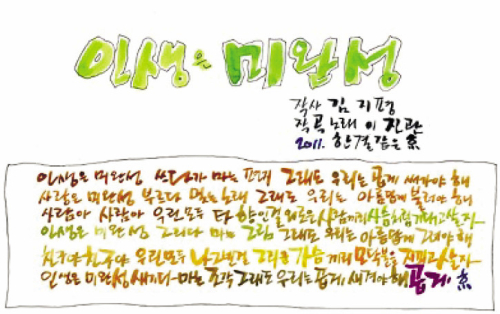 인생은 미완성
작사 김 지평
작곡 노래 이 진관
2011. 한결같은
인생은 미완성 쓰다가 마는 편지 그래도 우리는 곱게 써가야 해
사랑은 미완성 부르다 멎는 노래 그래도 우리는 아름답게 불러야 해
사랑아 사랑아 우린모두 타향인걸 외로운 사람끼리 사슴처럼 기대고 살자
인생은 미완성 그리다 마는 그림 그래도 우리는 아름답게 그려야 해
친구야 친구야 우린모두 나그넨걸 그리운 가슴끼리 모닥불을 지피고 살자
인생은 미완성 새기다 마는 조각 그래도 우리는 곱게 새겨야 해 곱게.